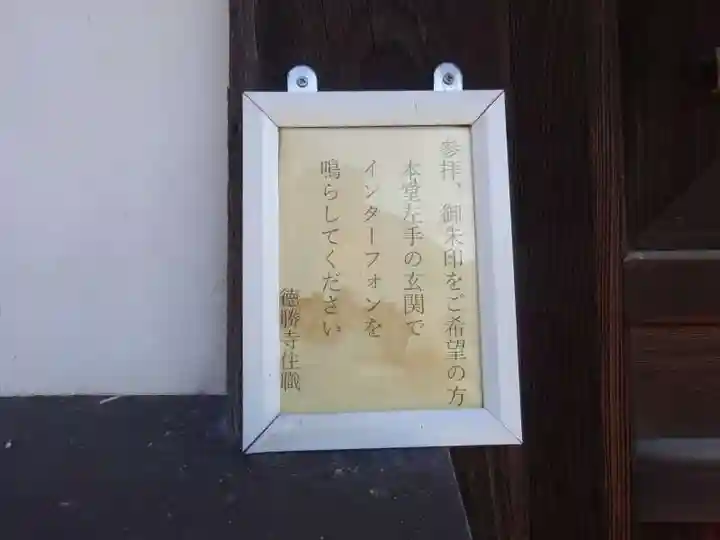 参拝、御朱印をご希望の方
本堂左手の玄関で
インターフォンを
鳴らしてください
徳勝寺住職